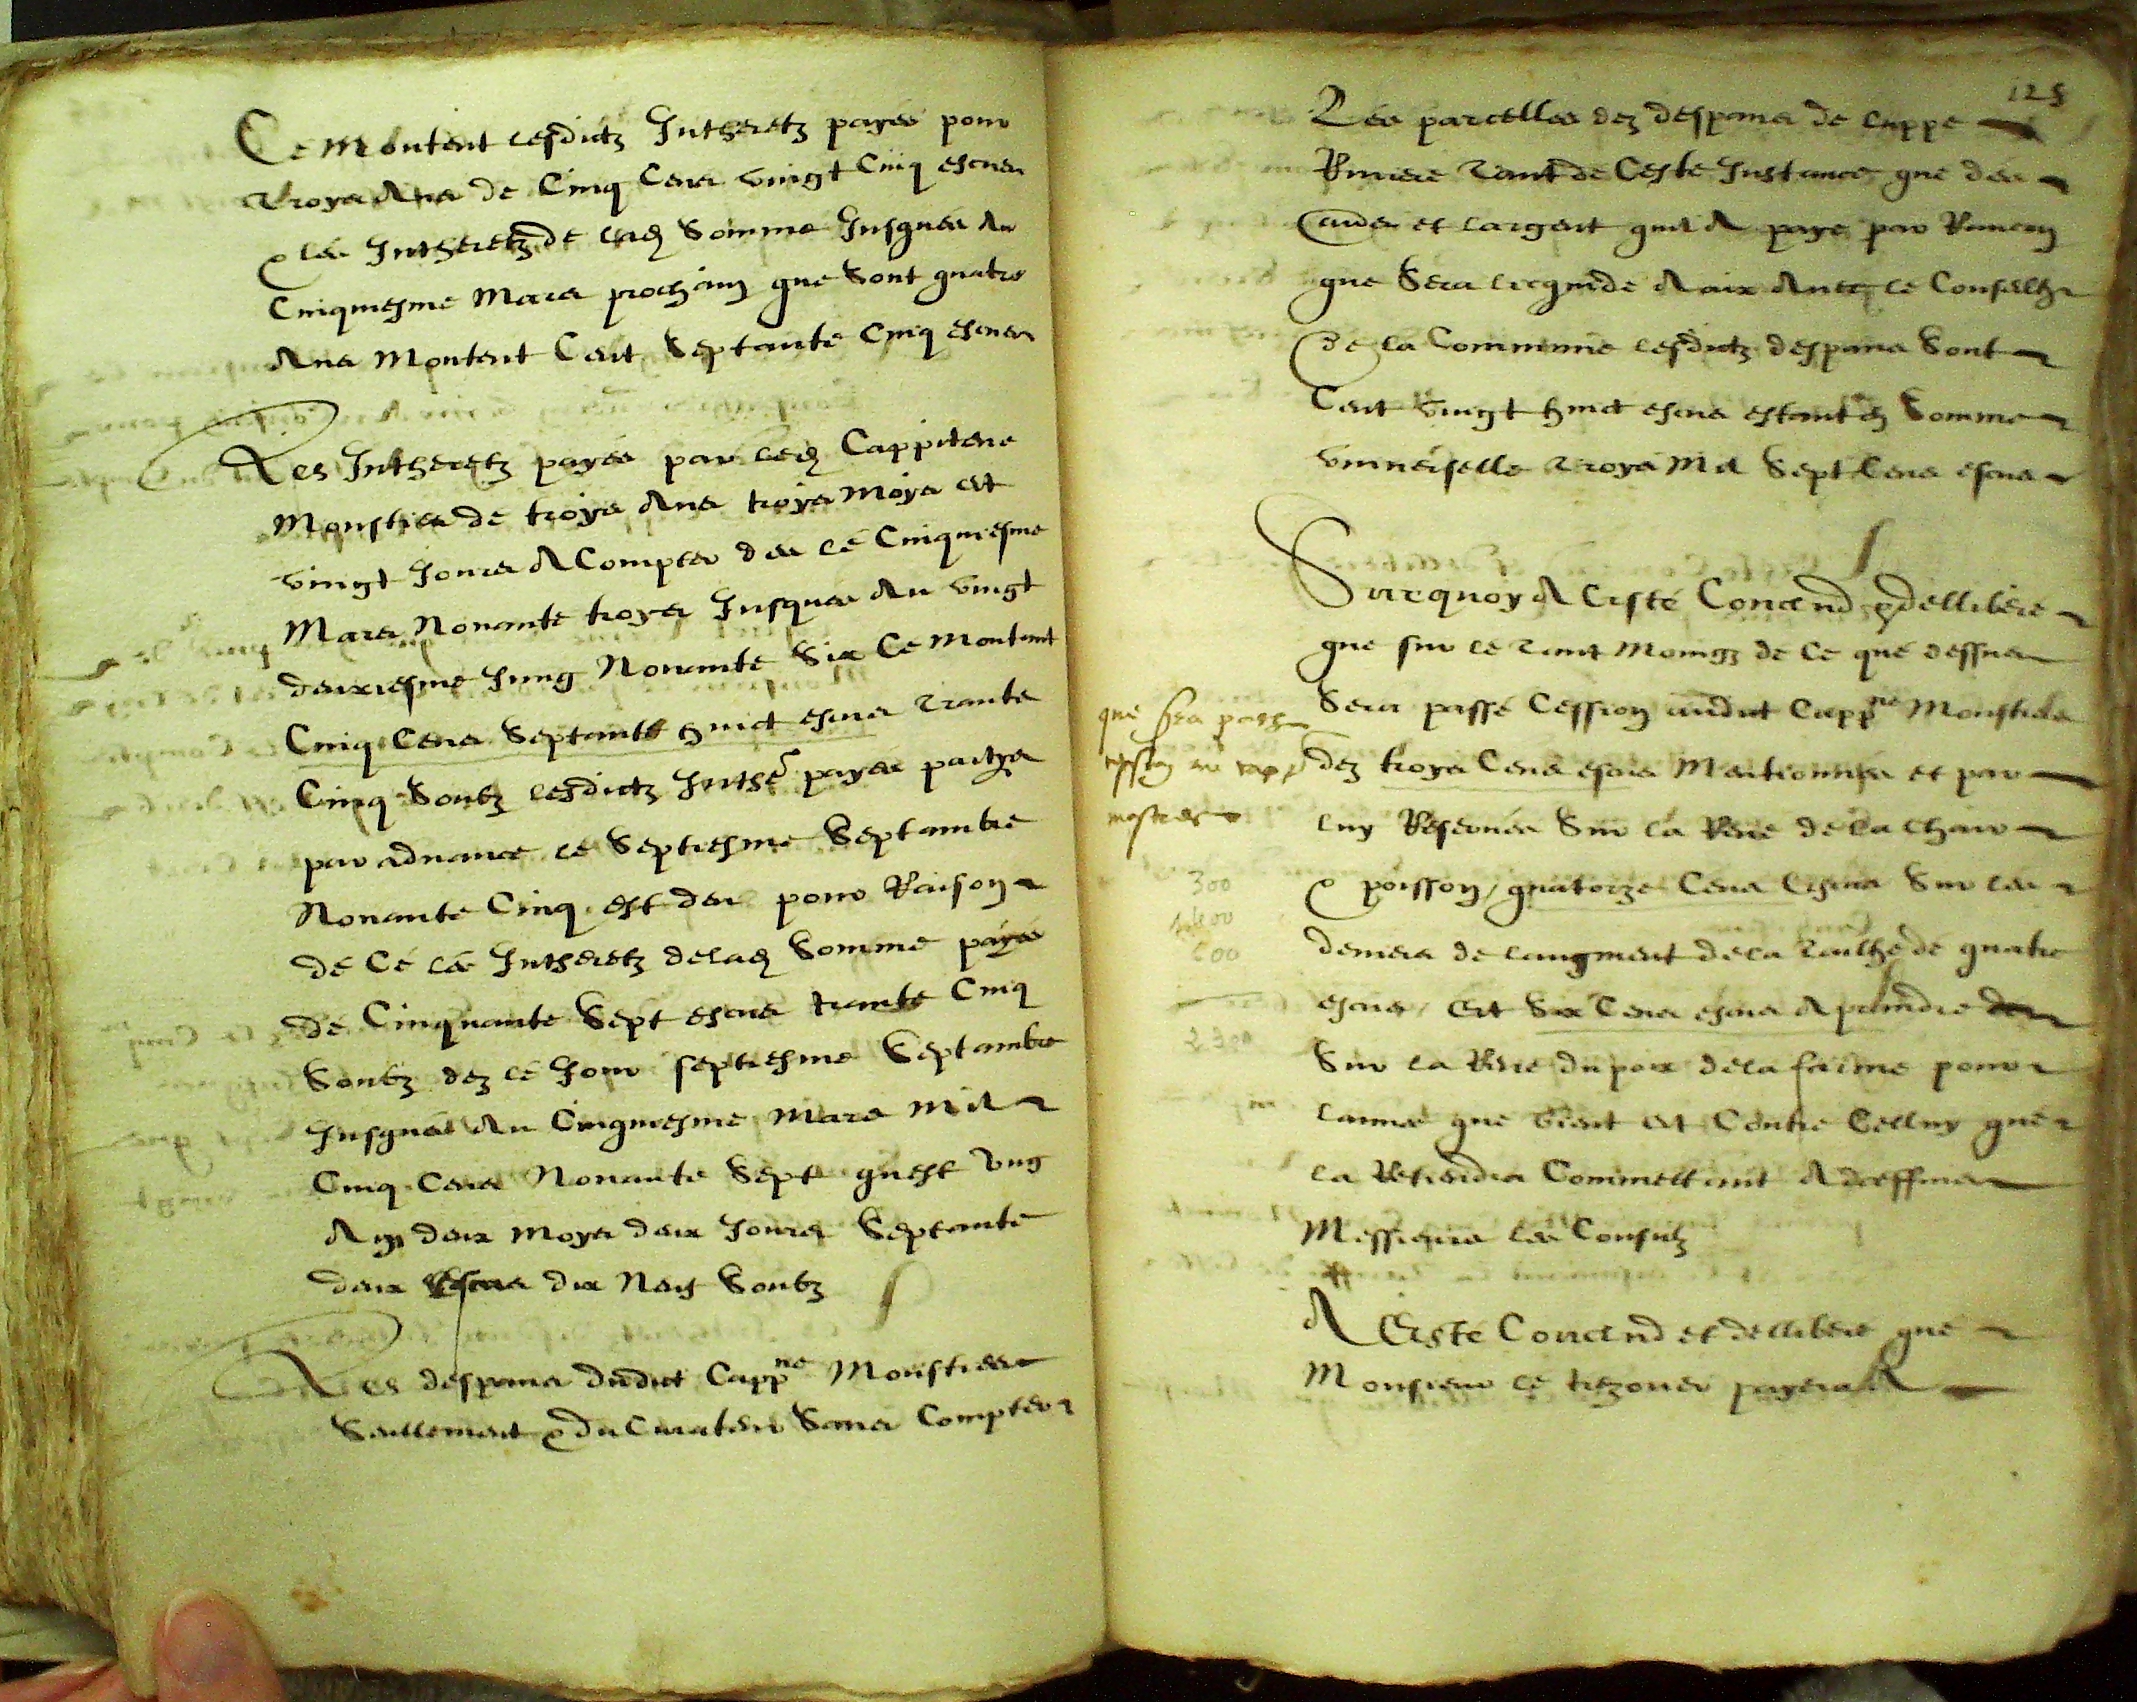 Ce montent lesdictz Intheretz payés pour
troys Ans de Cinq Cens vingt Cinq escus
& les Intheretz de lad Somme Jusques Au
Cinquiesme Mars prochain que Sont quatre
Ans Montent Cent Septante Cinq escus
Les Intheretz payés par led Cappitene
Monstier de troys Ans troys Moys et
vingt Jours A Compter des le Cinquiesme
Mars Nonante troys Jusques Au vingt
deuxiesme Jung Nonante Six Ce Montent
Cinq Cens Septante huict escus trante
Cinq Soubz lesdictz Inthe payés
par advance le Septiesme Septambre
Nonante Cinq est deu pour Raison
de Ce les Intheretz de lad Somme payés
de Cinquante Sept escus trante Cinq
Soubz dez le Jour septiesme Septambre
Jusques Au Cinquiesme Mars Mil
Cinq Cens Nonante Sept quest ung
An deux Moys deux Jours Septante
deux escus dix Neuf Soubz
Les despans dudict Capp^ne Monstier
Seullement & du Curateur Sans Compter
125
Les parcelles dez despans de
Riviere tant de Ceste Instance que des
et largent quil A paye par
que Sera licquide A aix Avec le Conselh
de la Commune lesdictz despans Sont
Cent vingt huict escus estant en Somme
universelle troys Mil Sept Cens escus
Surquoy A Esté Concnd & dellibere
que sur le tant Moingz de Ce que dessus
Sera passé Cession audict Capp^ne Monstier
dez troys Cens escus Mentionnés et par
luy Reservés Sur la Reve de la Chair
& poisson, quatorze Cens escus Sur les
deniers de laugment de la tailhe de quatre
escus, Et Six Cens escus A prandre
Sur la Reve du poix de la farine pour
lannée que vient et Contre Celluy que
la Retiendra Commettant A
Messieurs les Consulz
A Esté Concnd et dellibere que
Monsieur le trezorier payera A
que sera passé
cession au capp
mostier
300
1400
600
2300